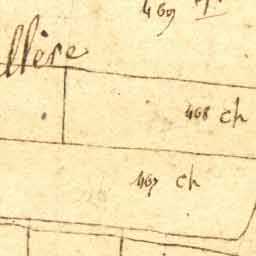 469
llère
468 ch
467 ch